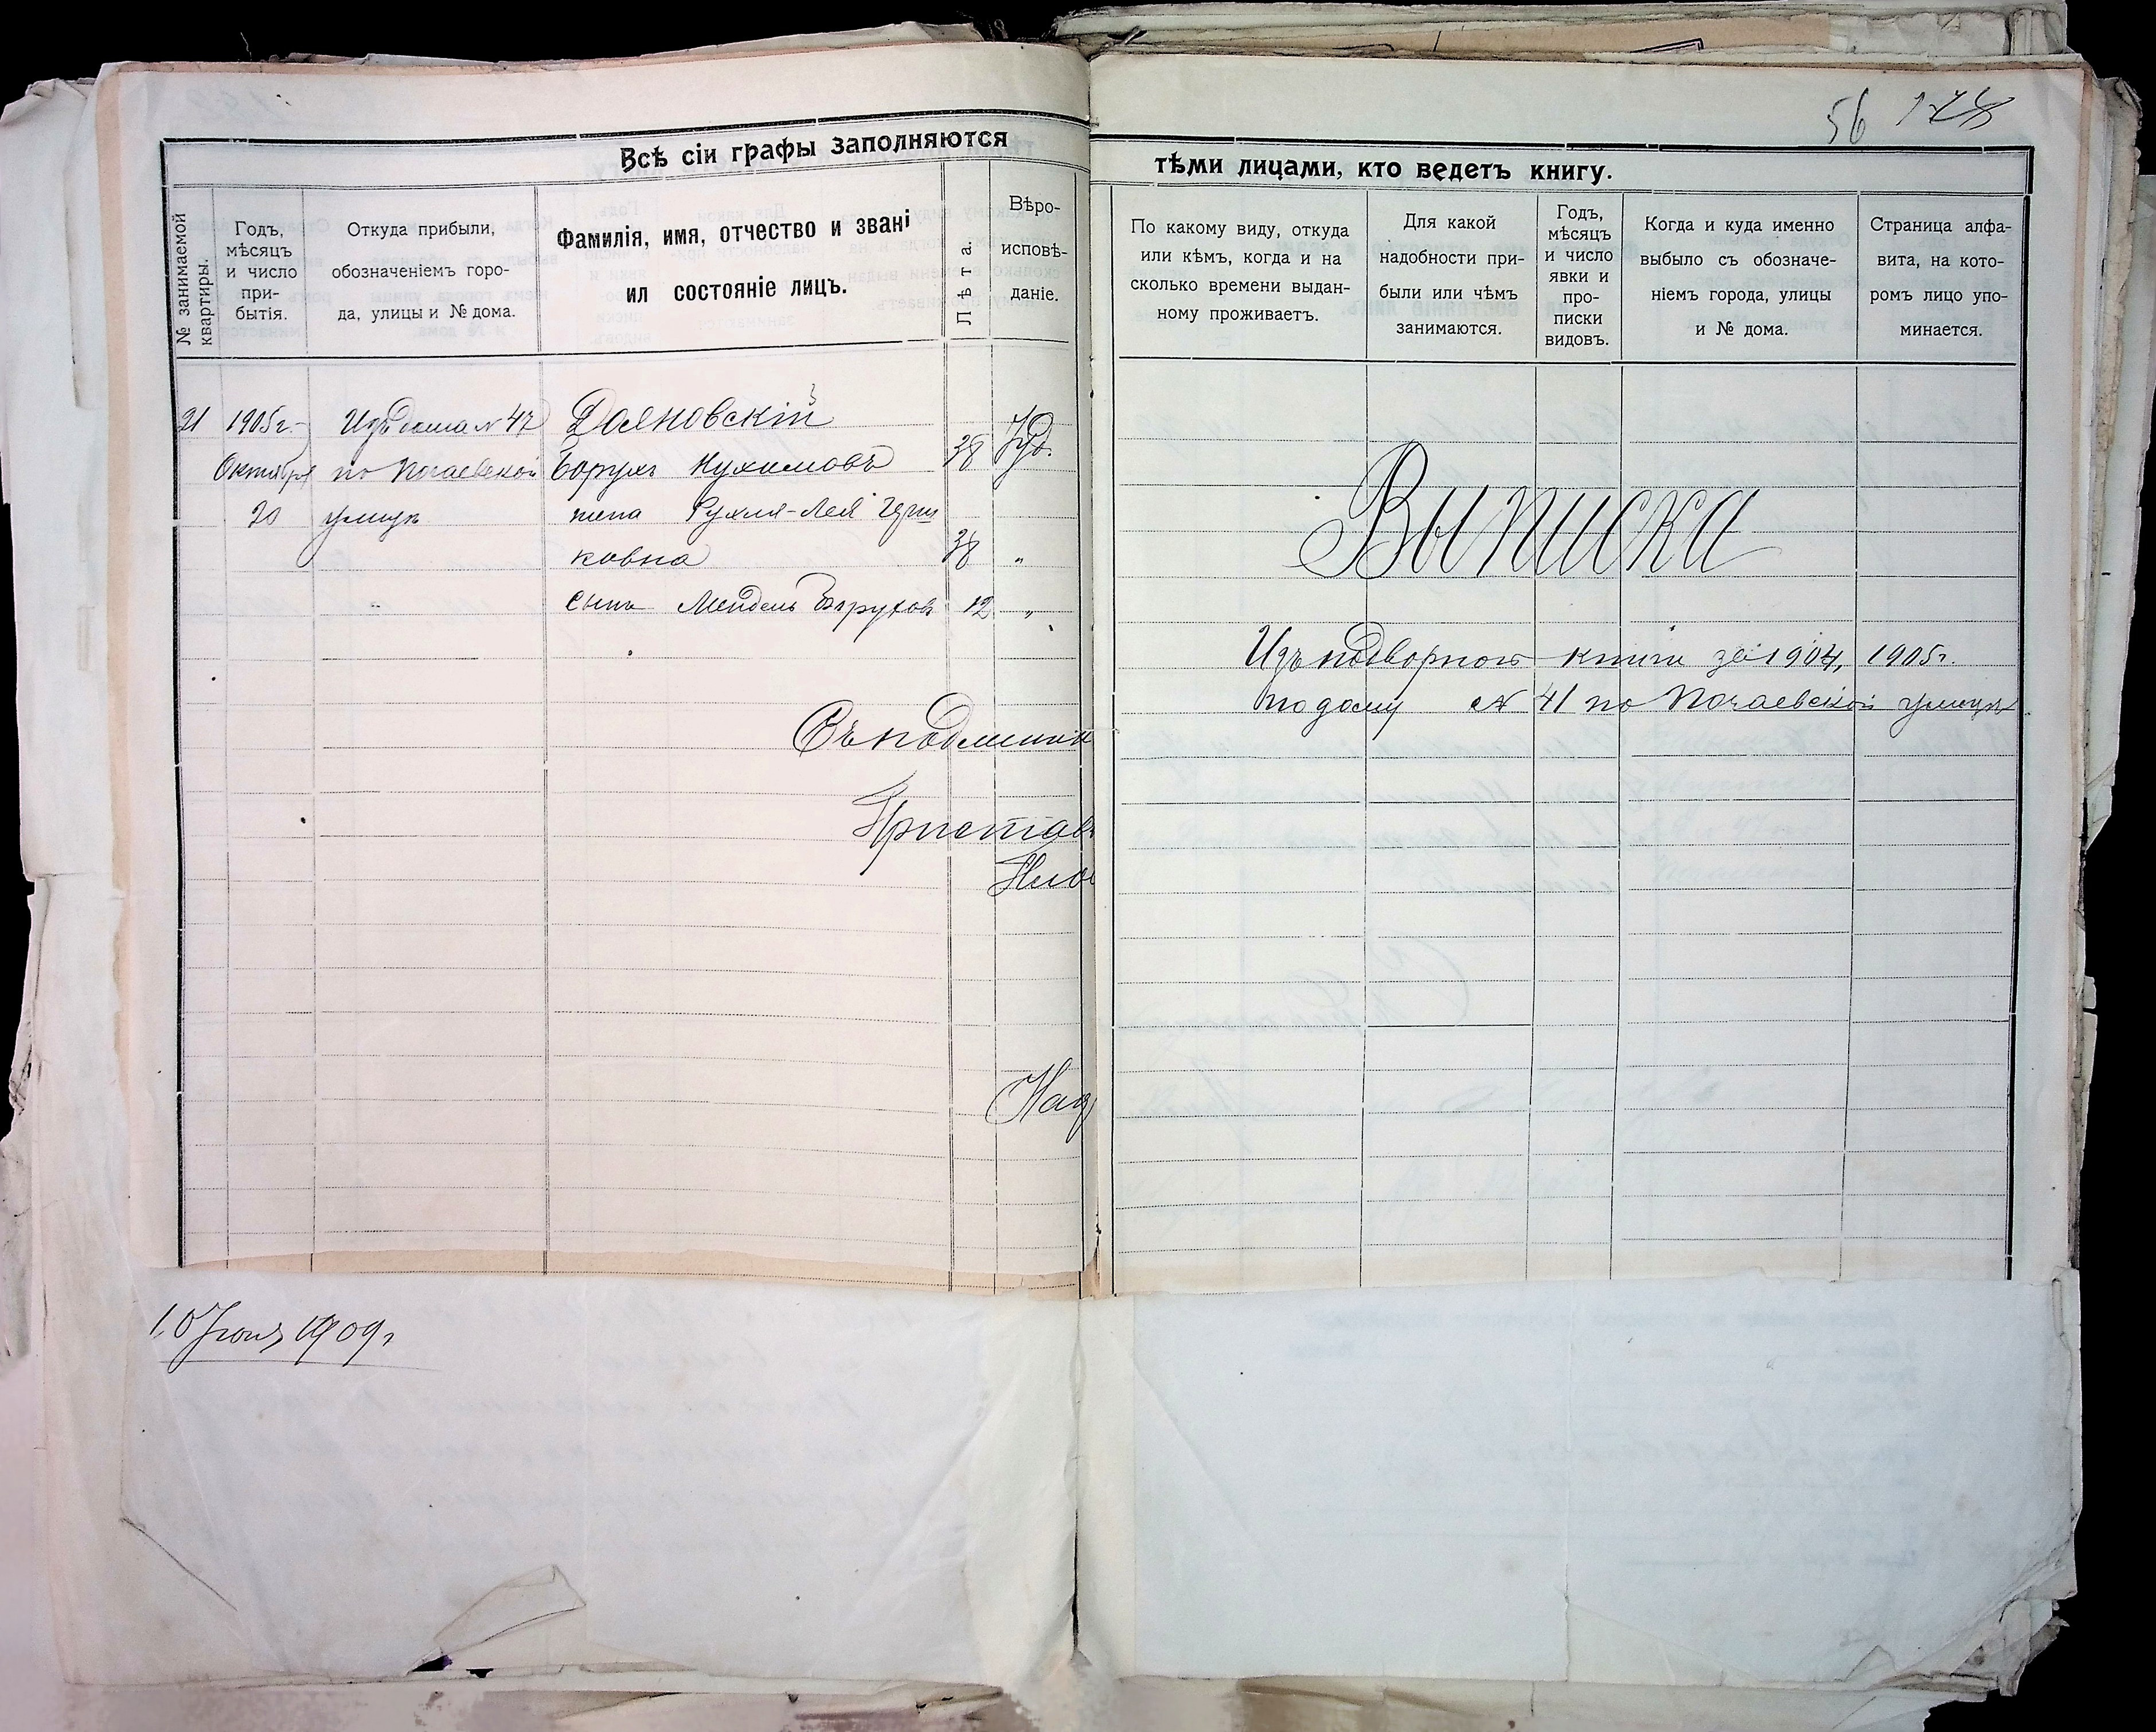 56 178
Всѣ сіи графы заполняются
тѣми лицами, кто ведетъ книгу.
№ занимаемой
квартиры.
Годъ,
мѣсяцъ
и число
при-
бытія.
Откуда прибыли,
обозначеніемъ горо-
да, улицы и № дома.
Фамилія, имя, отчество и звані
ил состояніе лицъ.
Лѣта.
Вѣро-
исповѣ-
даніе.
По какому виду, откуда
или кѣмъ, когда и на
сколько времени выдан-
ному проживаетъ.
Для какой
надобности при-
были или чѣмъ
занимаются.
Годъ,
мѣсяцъ
и число
явки и
про-
писки
видовъ.
Когда и куда именно
выбыло съ обозначе-
ніемъ города, улицы
и № дома.
Страница алфа-
вита, на кото-
ромъ лицо упо-
минается.
21 1905г. Изъ дома № 47 Дояновскій
Октября по Почаевской Борухъ Нухимовъ 38 Іуд.
20 улицѣ жена Рухля-Лея Герш
ковна 38 "
" сынъ Мендель Боруховъ 12 "
Выписка
Изъ подворной книги за 1904, 1905г.
по дому № 41 по Почаевской улицѣ
Съ подлинн
Приставъ
Над
10 Іюня 1909г